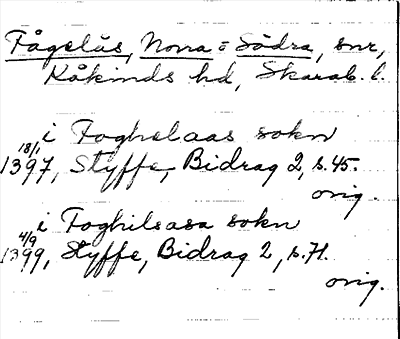 Fågelås, Norra o Södra, snr,
Kåkinds hd, Skarab. l.
i Foghelaas sokn
18/1 1397, Styffe, Bidrag 2, s. 45.
orig.
i Foghilsasa sokn
4/9 1399, Styffe, Bidrag 2, s. 71.
orig.